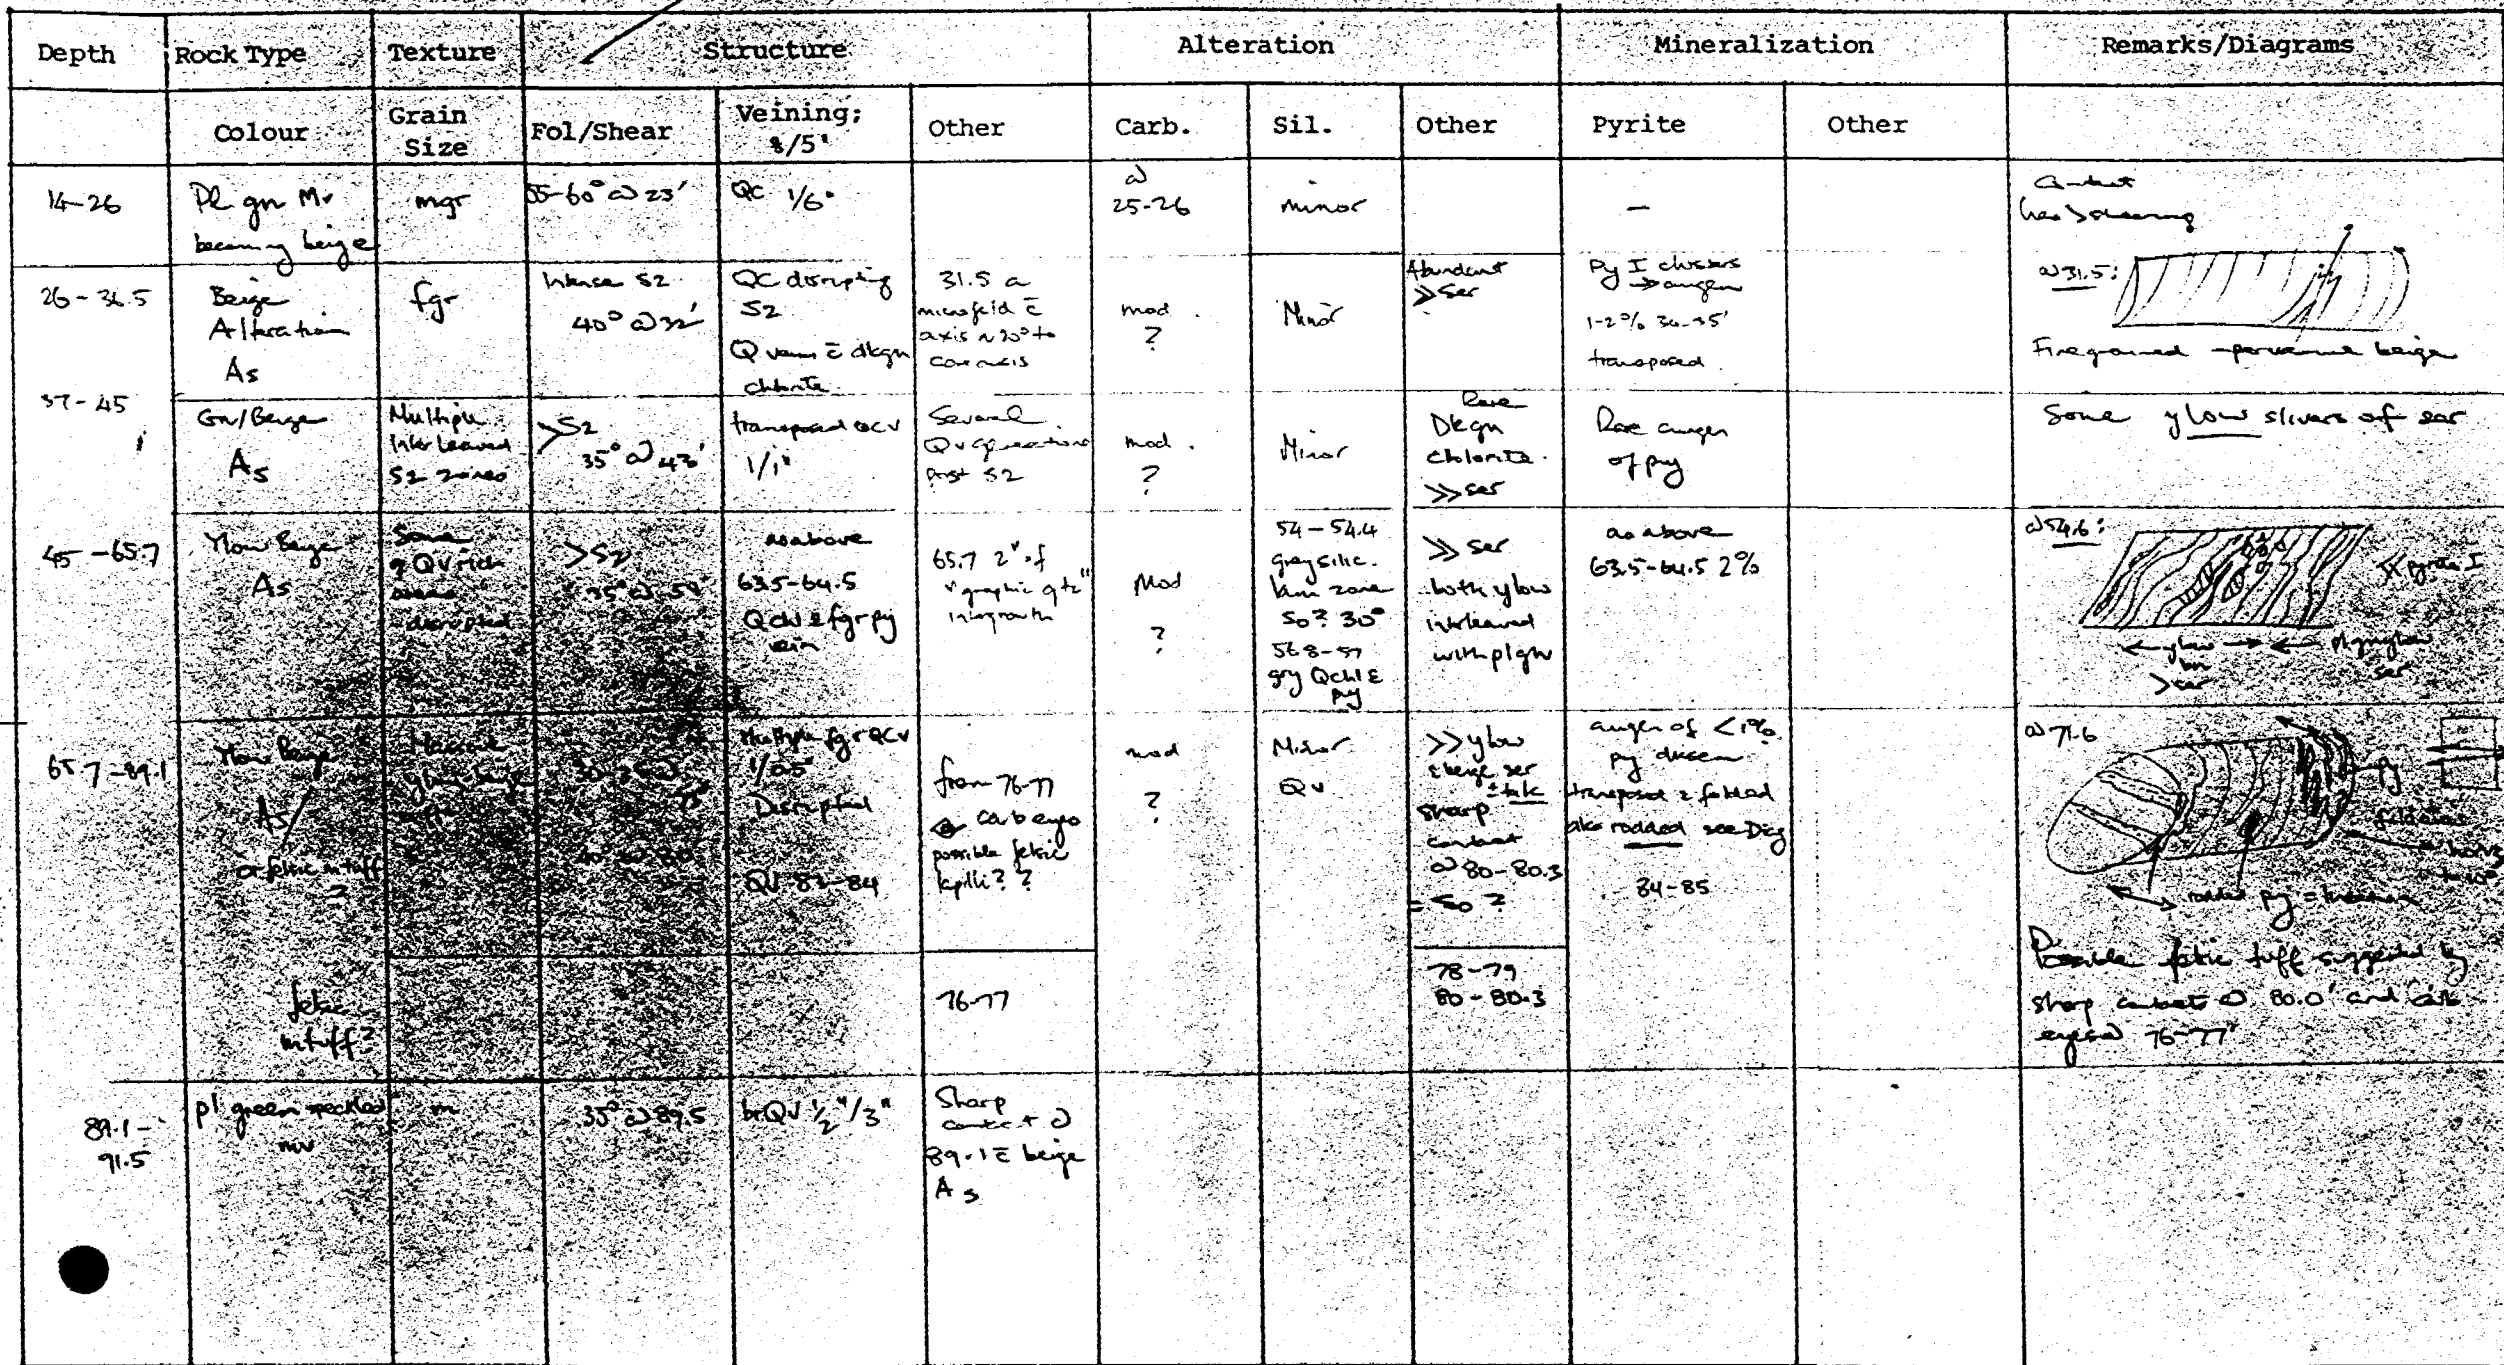 Depth Rock Type Texture Structure Alteration Mineralization Remarks/Diagrams
Colour Grain Size Fol/Shear Veining; %/5' Other Carb. Sil. Other Pyrite Other
14-26
Pl gn Mv
becoming beige
mgr
55-60° @ 23'
QC 1/6"
@
25-26
minor
—
Contact
has > shearing
26-36.5
Beige
Alteration
As
fgr
Intense S2
40° @ 32'
QC disrupting
S2
Q veins c̄ dkgn
chlorite
31.5 a
microfold c̄
axis ~20° to
core axis
mod.
?
Minor
Abundant
>> ser
Py I clusters
→ augen
1-2% 34-35'
transposed
@ 31.5:
Fine grained - pervasive beige
37-45
Gn/Beige
As
Multiple
Interleaved
S2 zones
>S2
35° @ 43'
transposed QCV
1/1"
Several
Qv generations
post S2
mod.
?
Minor
Rare
Dkgn
chlorite.
>> ser
Rare augen
of py
Some ylow slivers of ser
45-65.7
Ylow Beige
As
Some
Qv rich
disrupted
>S2
as above
63.5-64.5
Qchl & fgr py
vein
65.7 2" of
"graphic qtz"
intergrowth
Mod
?
54-54.4
grey silic.
lam zone
S0? 30°
56.8-57
gry Qchl &
py
>> ser
both ylow
interleaved
with pl gn
as above
63.5-64.5 2%
@ 54.6:
pyrite I
ylow
> ser
ser
65.7-89.1
Ylow Beige
As/
or felsic mtuff
?
Multiple fgr QCV
1/0.5"
Disrupted
QV 83-84
from 76-77
carb eyes
possible felsic
lapilli??
mod
?
Minor
QV
>> ylow
& beige ser
± talc
sharp
contact
@ 80-80.3
= S0?
augen of <1%
py dissem
transposed & folded
also rodded see Diag
84-85
@ 71.6
py
rodded py = lineation
Possible felsic tuff suggested by
sharp contact @ 80.0' and carb
eyes @ 76-77'
felsic
mtuff?
76-77
78-79
80-80.3
89.1-
91.5
pl green speckled
mv
m
35° @ 89.5
QV 1/2"/3"
Sharp
contact @
89.1 c̄ beige
As